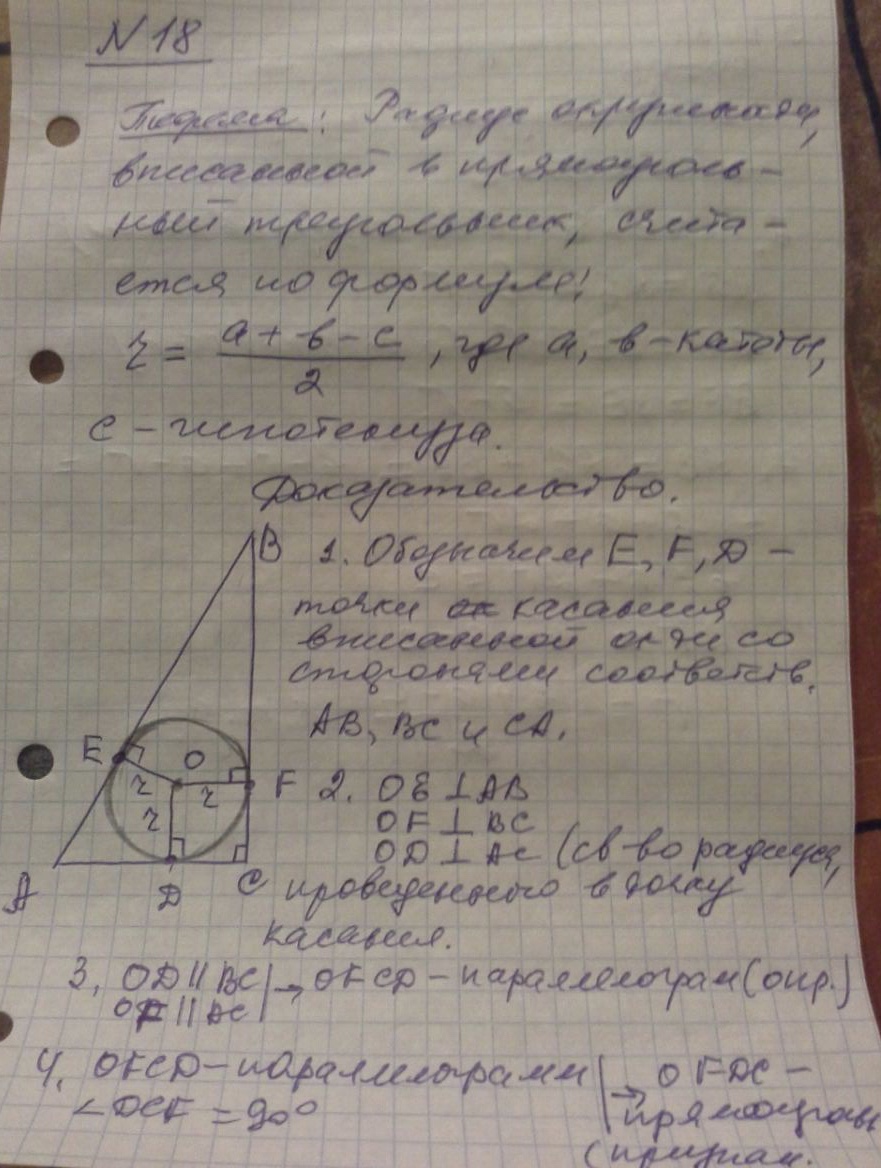 N 18
Теорема: Радиус окружности,
вписанной в прямоуголь-
ный треугольник, счита-
ется по формуле:
r = a + b - c / 2, где a, b - катеты,
c - гипотенуза.
Доказательство.
1. Обозначим E, F, D -
точки касания
вписанной окр-ти со
сторонами соответств.
AB, BC и CA.
2. OE ⊥ AB
OF ⊥ BC
OD ⊥ AC (св-во радиуса,
проведенного в точку
касания.
3. OD || BC | → OFCD - параллелограм (опр.)
OF || AC
4. OFCD - параллелограмм | → OFDC -
∠DCF = 90° прямоуголь
(признак.
B
E
O
r
r
r
F
A
D
C